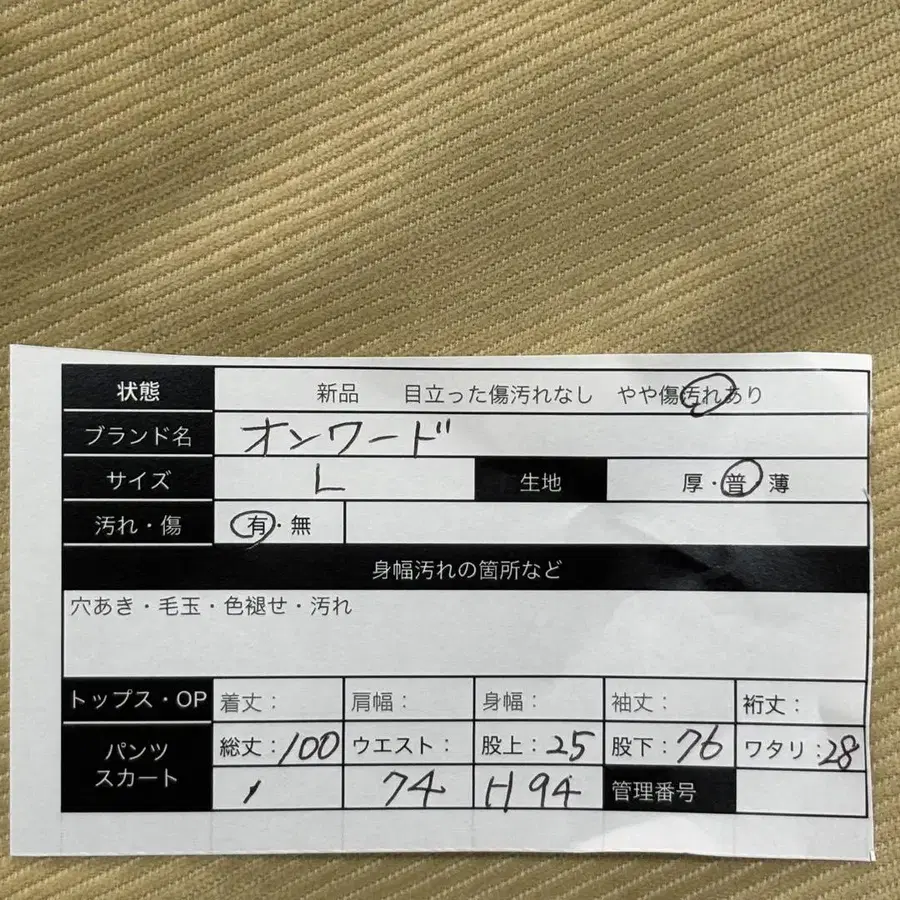 状態 新品 目立った傷汚れなし やや傷汚れあり
ブランド名 オンワード
サイズ L 生地 厚・普・薄
汚れ・傷 有・無
身幅汚れの箇所など
穴あき・毛玉・色褪せ・汚れ
トップス・OP 着丈: 肩幅: 身幅: 袖丈: 裄丈:
パンツ スカート 総丈:100 ウエスト: 股上:25 股下:76 ワタリ:28
74 H94 管理番号